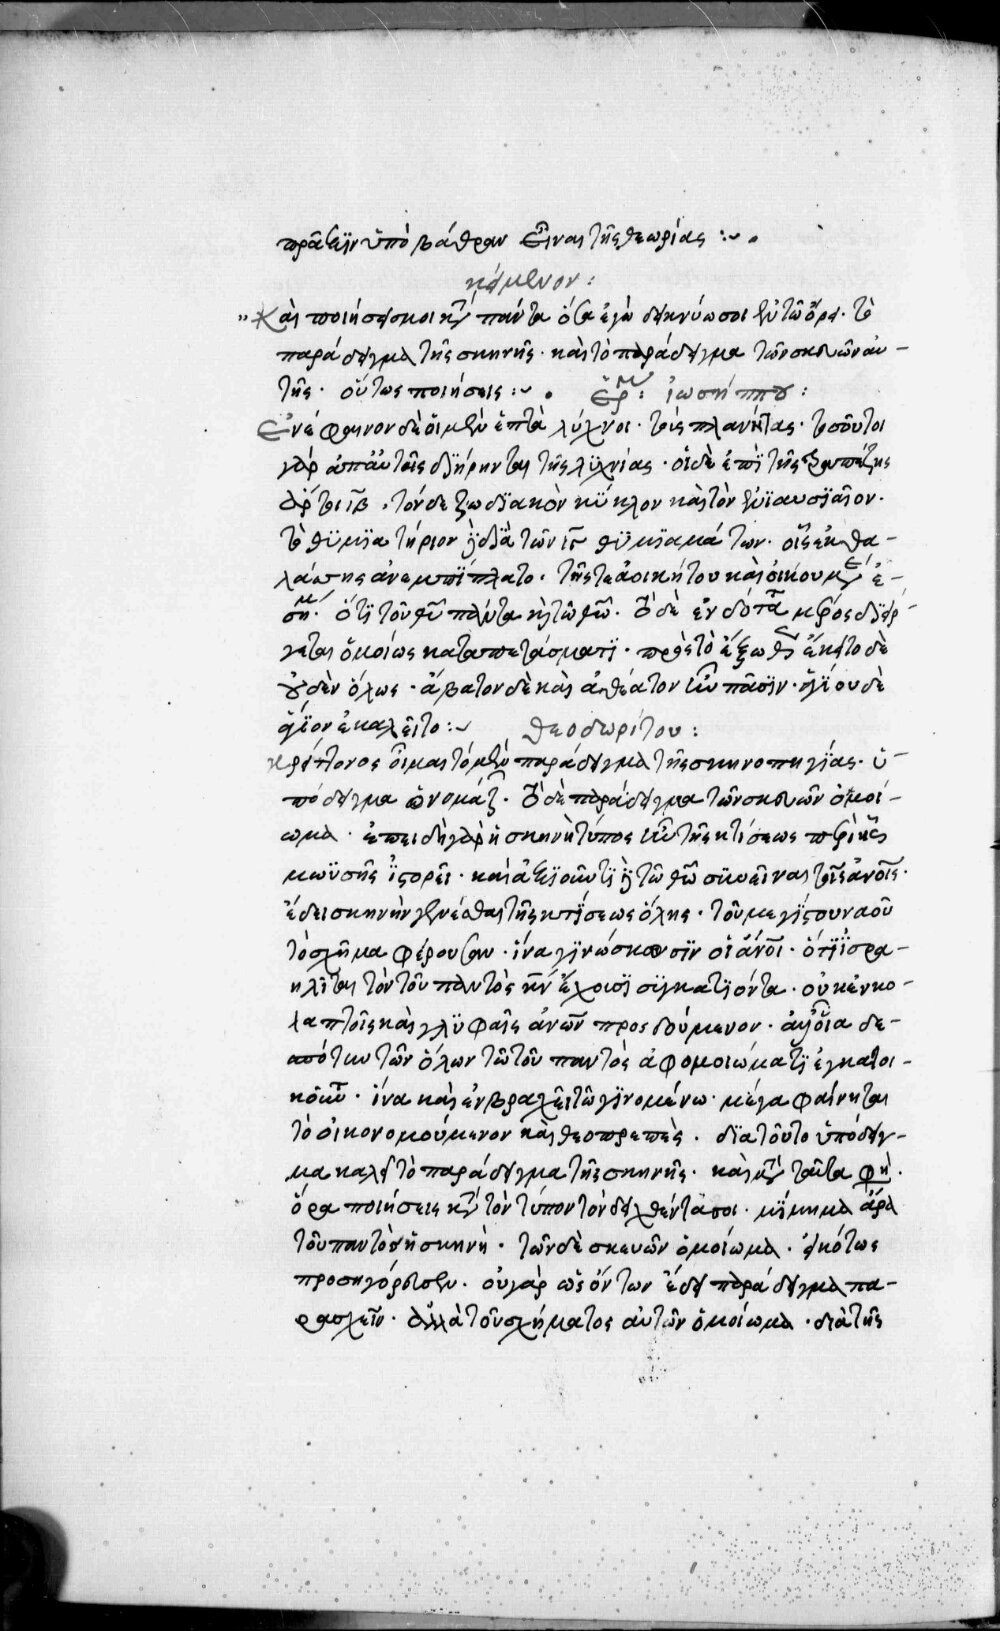 πρᾶξιν ὑπὸ βάθραν εἶναι τῆς θεωρίας :~ .
κείμενον :
" Καὶ ποιήσεις μοι κατὰ πάντα ὅσα ἐγὼ δεικνύω σοι ἐν τῶ ὄρει · τὸ
παράδειγμα τῆς σκηνῆς · καὶ τὸ παράδειγμα τῶν σκευῶν αὐ-
τῆς · οὕτως ποιήσεις :~ . Ἑρμ : ἰωσήππου :
Ἐνέφαινον δὲ οἱ μὲν ἑπτὰ λύχνοι · τοὺς πλανήτας · τοσοῦτοι
γὰρ ἀπ' αὐτῆς διήρηνται τῆς λυχνίας · οἱ δὲ ἐπὶ τῆς τραπέζης
ἄρτοι ιβ · τόν δε ζωδιακὸν κύκλον καὶ τὸν ἐνιαυσιαῖον ·
τὸ θυμιατήριον δὲ διὰ τῶν ιγ θυμιαμάτων · οἷς ἐκ θα-
λάσσης ἀνεμπίπλατο · τῆς τε ἀοικήτου καὶ οἰκουμένης ἐ-
σήμ · ὅτι τοῦ θῦ πάντα καὶ τῶ θῶ · Τὸ δὲ ἐνδότατον μέρος διείρ-
γεται ὁμοίως καταπετάσματι · πρὸς τὸ ἔξωθεν ἔκειτο δὲ
οὐδὲν ὅλως · ἄβατον δὲ καὶ ἀθέατον ἦν πᾶσιν · ἁγίου δὲ
ἅγιον ἐκαλεῖτο :~ θεοδωρίτου :
κρείττονος οἶμαι τὸ μὲν παράδειγμα τῆς σκηνοπηγίας · ὑ-
πόδειγμα ὠνομάζει · Τὸ δὲ παράδειγμα τῶν σκευῶν ὁμοί-
ωμα · ἐπειδὴ γὰρ ἡ σκηνὴ τύπος ἦν τῆς κτίσεως περὶ ἧς
μωϋσῆς ἱστορεῖ · καὶ ἀξιοῦντι τῶ θῶ συνεῖναι τοῖς ἀνοις ·
ἔδει σκηνὴν γενέσθαι τῆς κτίσεως ὅλης · τοῦ μεγίστου ναοῦ
τὸ σχῆμα φέρουσαν · ἵνα γινώσκωσιν οἱ ἄνοι · ὅτι ἰσρα-
ηλῖται τὸν τοῦ παντὸς κν ἔχοισι συγκατιόντα · οὐκ ἐν κο-
λαπτοῖς καὶ γλυφαῖς ἀνων προσδούμενον ·
τῶν ὅλων τῶ τοῦ παντὸς ἀφομοιώματι ἐγκατοι-
κοῦν · ἵνα καὶ ἐν βραχεῖ τῶ γινομένω · μέγα φαίνηται
τὸ οἰκονομούμενον καὶ θεοπρεπὲς · διατοῦτο ὑπόδειγ-
μα καλεῖ τὸ παράδειγμα τῆς σκηνῆς · καὶ μετὰ ταῦτα φη ·
ὅρα ποιήσεις κατὰ τὸν τύπον τὸν δειχθέντα σοι · μίμημα ἄρα
τοῦ παντὸς ἡ σκηνὴ · τῶν δὲ σκευῶν ὁμοίωμα · εἰκότως
προσηγόρευσεν · οὐ γὰρ ὡς ὄντων ἔδει παράδειγμα πα-
ρασχεῖν · ἀλλὰ τοῦ σχήματος αὐτῶν ὁμοίωμα · διὰ τῆς